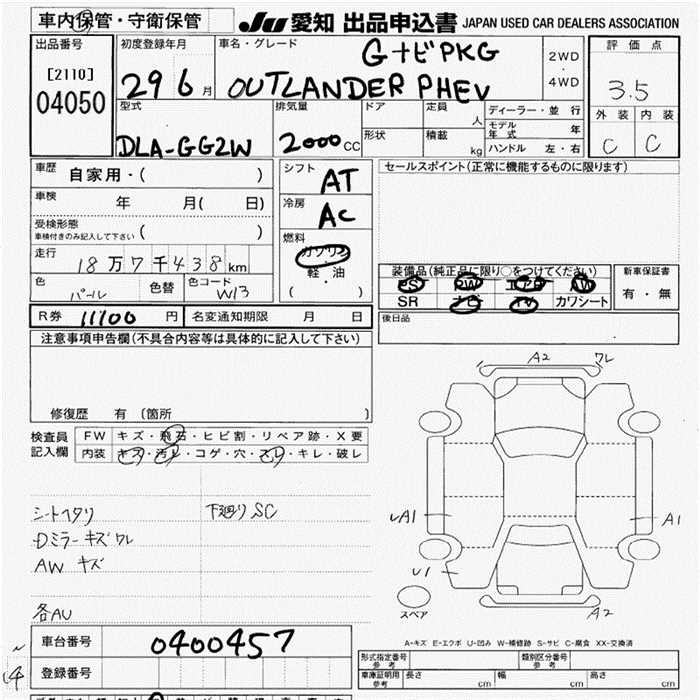 車内保管・守衛保管
JU 愛知 出品申込書 JAPAN USED CAR DEALERS ASSOCIATION
出品番号
[2110]
04050
初度登録年月
29 6 月
車名・グレード
GナビPKG
OUTLANDER PHEV
2WD
・
4WD
評価点
3.5
外装 内装
C C
型式
DLA-GG2W
排気量
2000 CC
ドア
形状
定員
人
積載
kg
ディーラー・並行
モデル年式 年
ハンドル 左・右
車歴 自家用・( )
車検 年 月( 日)
受検形態
車検付きのみ記入して下さい ( )
走行 18万7千438km
色 パール 色替 色コード W13
シフト
AT
冷房
AC
燃料
ガソリン
・
軽・油
( )
セールスポイント(正常に機能するものに限ります)
装備品(純正品に限り○をつけてください)
PS PW エアB AW
SR ナビ TV カワシート
新車保証書
有・無
後日品
R券 11100 円 名変通知期限 月 日
注意事項申告欄(不具合内容等は具体的に記入して下さい)
修復歴 有(箇所 )
検査員
記入欄
FW キズ・飛石・ヒビ割・リペア跡・X要
内装 キズ・汚レ・コゲ・穴・スレ・キレ・破レ
シートヘタリ 下廻りSC
Dミラーキズワレ
AW キズ
各AU
A2 ワレ
A1
A1
U1
A2
スペア
A-キズ E-エクボ U-凹み W-補修跡 S-サビ C-腐食 XX-交換済
車台番号 0400457
登録番号
形式指定番号
参考
類別区分番号
参考
車庫証明用
参考
長さ cm 幅 cm 高さ cm